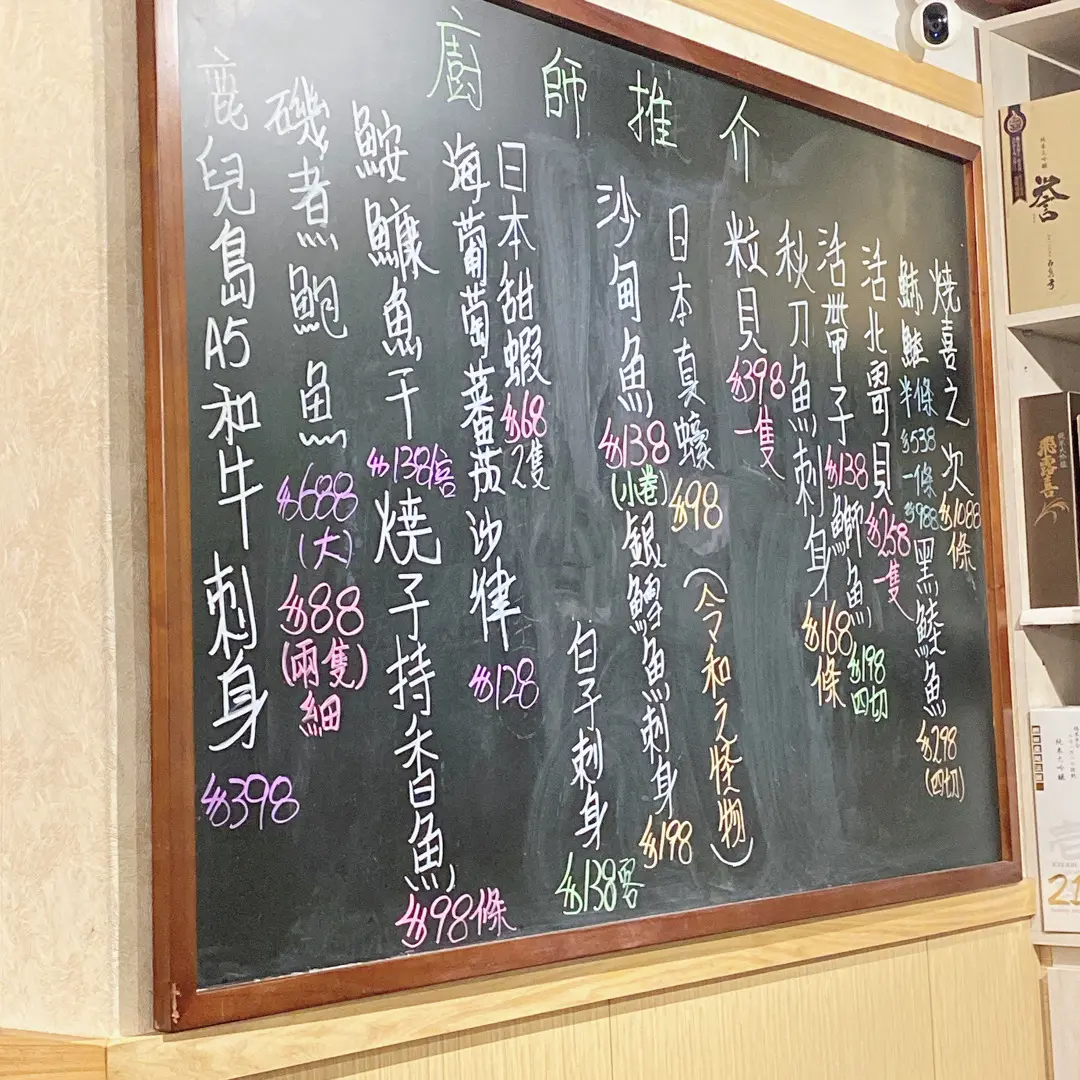 廚師推介
燒喜之次 $1088 條
鮴鯥 半條 $538 一條 $988
黑鯥魚 $298 (四切)
活北寄貝 $258 一隻
活帶子 $138
鰤魚 $198 四切
秋刀魚刺身 $168 條
粒貝 $398 一隻
日本真蠔 $98
(令和之怪物)
沙甸魚 $138 (小卷)
銀鱈魚刺身 $198
白子刺身 $138 客
日本甜蝦 $68 2隻
海葡萄蕃茄沙律 $128
鮟鱇魚干 $138/客
燒子持香魚 $98 條
磯煮鮑魚 $688 (大)
$88 (兩隻) 細
鹿兒島A5和牛刺身 $398
誉
飛露喜
純米大吟醸
21